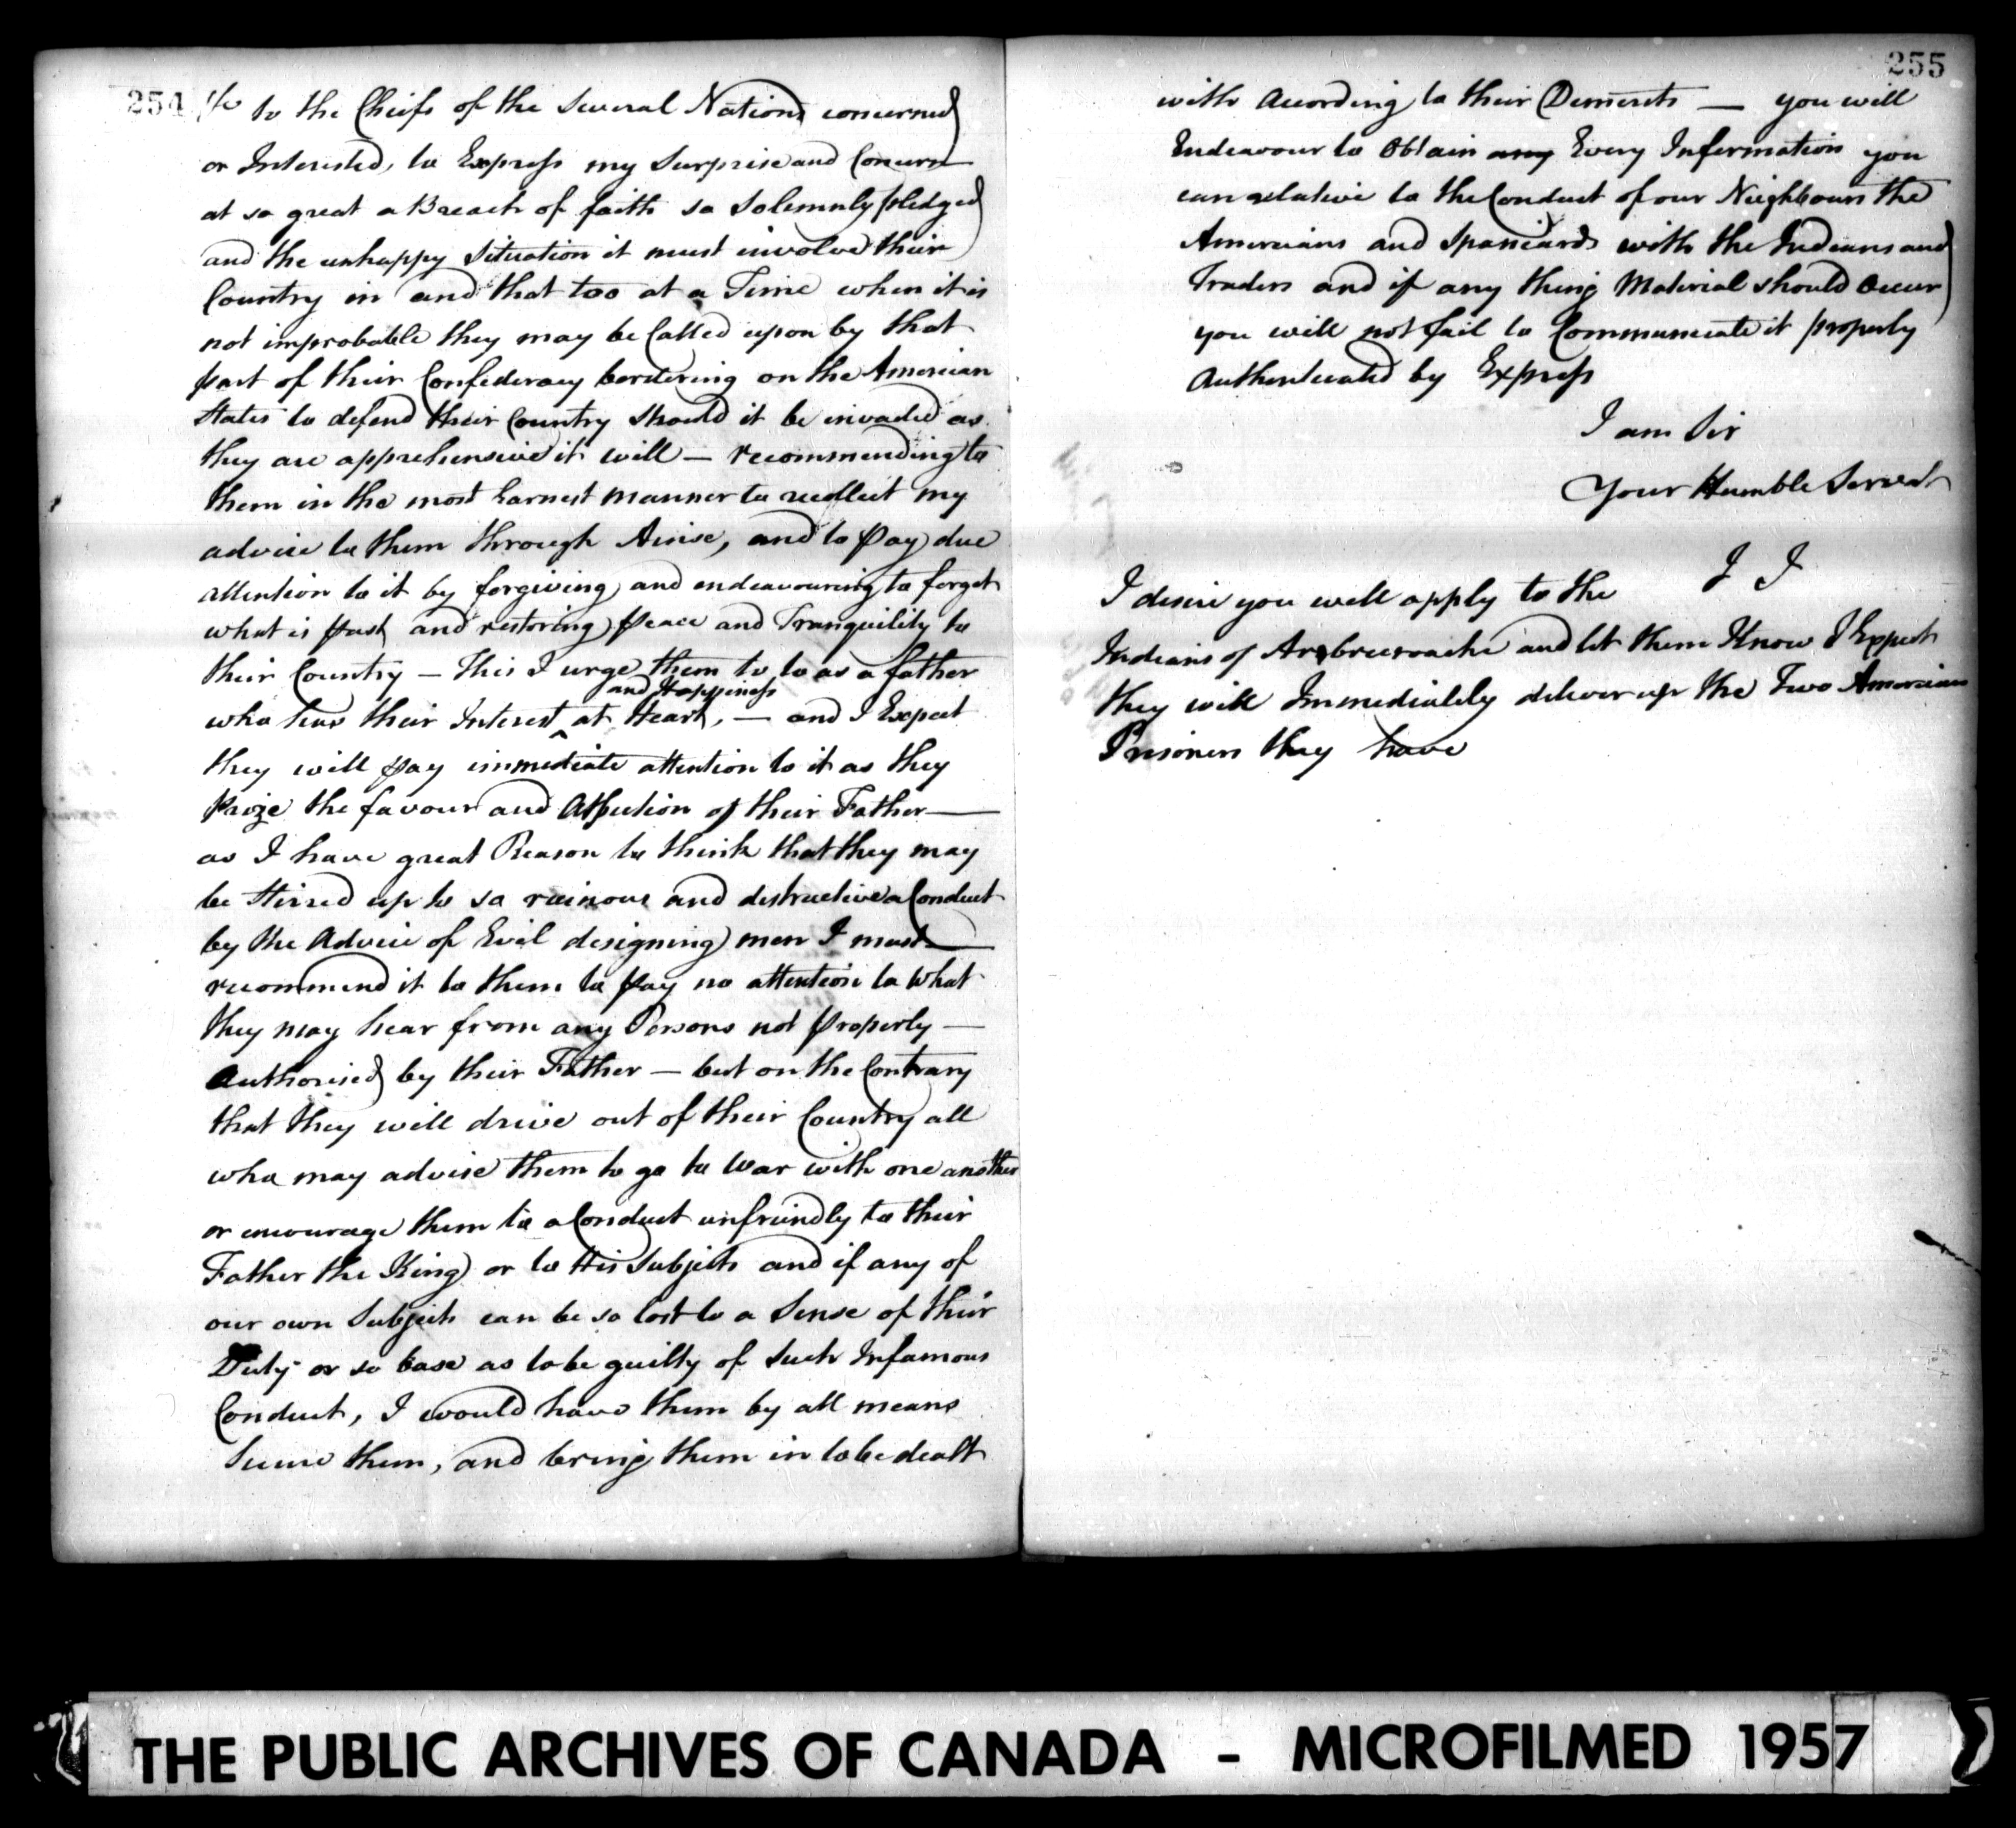 254
to the Chiefs of the Several Nations concerned
or Interested, to Express my Surprise and Concern
at so great a Breach of faith so Solemnly pledged
and the unhappy Situation it must involve their
Country in and that too at a Time when it is
not improbable they may be Called upon by that
part of their Confederacy bordering on the American
States to defend their Country should it be invaded as
they are apprehensive it will — recommending to
them in the most Earnest manner to recollect my
advice to them through Ainse, and to pay due
attention to it by forgiving and endeavouring to forget
what is past and restoring peace and Tranquility to
their Country — This I urge them to to as a father
and Happiness
who has their Interest ‸ at Heart, — and I Expect
they will pay immediate attention to it as they
Prize the favour and Affection of their Father —
as I have great Reason to think that they may
be Stirred up to so ruinous and destructive a Conduct
by the Advice of Evil designing men I must —
recommend it to them to pay no attention to What
they may hear from any Persons not properly —
Authorised by their Father — but on the Contrary
that they will drive out of their Country all
who may advise them to go to War with one another
or encourage them to a Conduct unfriendly to their
Father the King or to His Subjects and if any of
our own Subjects can be so lost to a Sense of their
Duty or so base as to be guilty of Such Infamous
Conduct, I would have them by all means
Secure them, and bring them in to be dealt
255
with According to their Demerits — you will
Endeavour to Obtain any Every Information you
can relative to the Conduct of our Neighbours the
Americans and Spaniards with the Indians and
Traders and if any thing Material should Occur
you will not fail to Communicate it properly
Authenticated by Express
I am Sir
Your Humble Servt
J J
I desire you will apply to the
Indians of Arbrecroache and let them Know I Expect
they will Immediately deliver up the Two American
Prisoners they have
THE PUBLIC ARCHIVES OF CANADA - MICROFILMED 1957